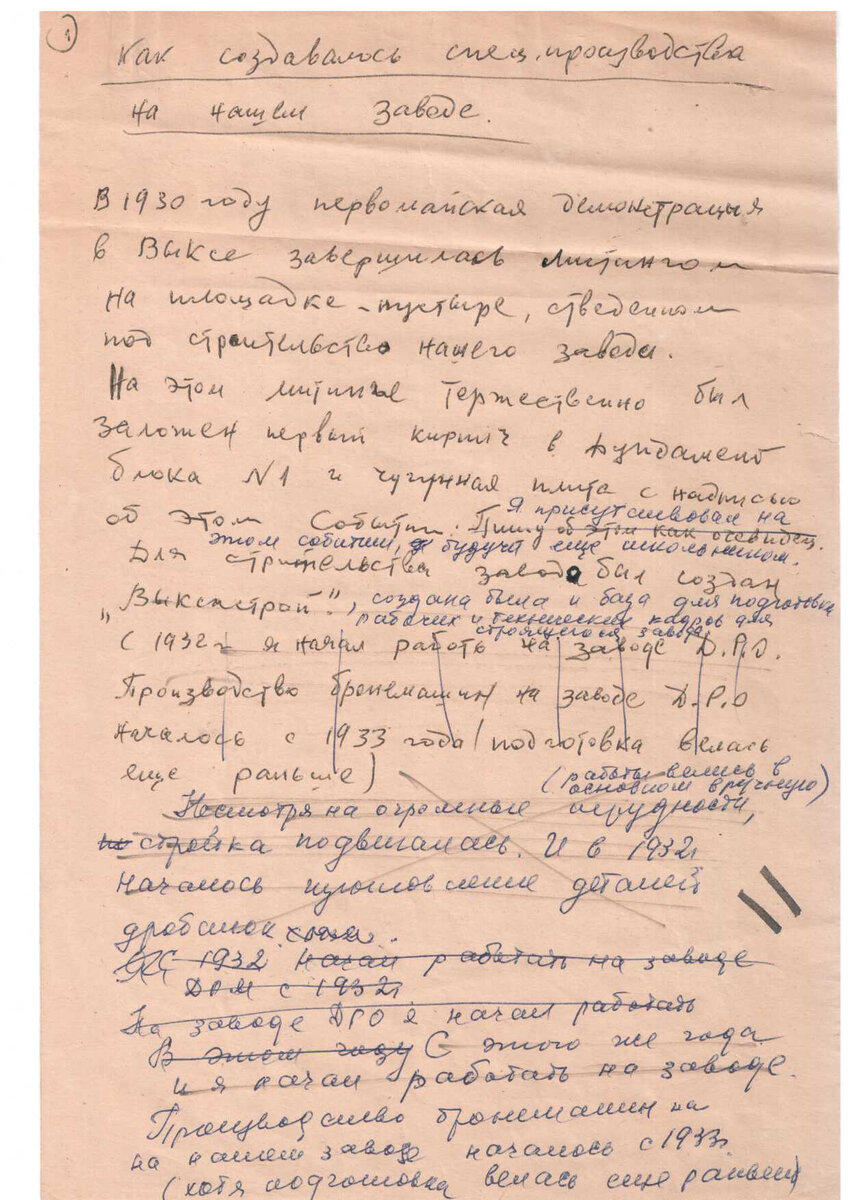 1
Как создавалось спец.производства
на нашем заводе.
В 1930 году первомайская демонстрация
в Выксе завершилась митингом
на площадке-пустыре, отведенном
под строительство нашего завода.
На этом митинге тержественно был
заложен первый кирпич в фундамент
блока N1 и чугунная плита с надписью
об этом событии. Пишу об этом как очевидец.
Я присутствовал на
этом событии, будучи еще школьником.
Для строительства завода был создан
"Выксастрой", создана была и база для подготовки
рабочих и технических кадров для
строящегося завода
С 1932 г я начал работь на заводе Д.Р.О.
Производство бронемашин на заводе Д.Р.О
началось с 1933 года (подготовка велась
еще раньше)
(работы велись в
основном вручную)
Несмотря на огромные трудности,
стройка подвигалась. И в 1932г
началось изготовление деталей
дробилок
С 1932 начал работать на заводе
ДРМ с 1932г
На заводе ДРО я начал работать
В этом году С этого же года
и я начал работать на заводе.
Производство бронемашин на
на нашем заводе началось с 1933г
(хотя подготовка велась еще раньше)